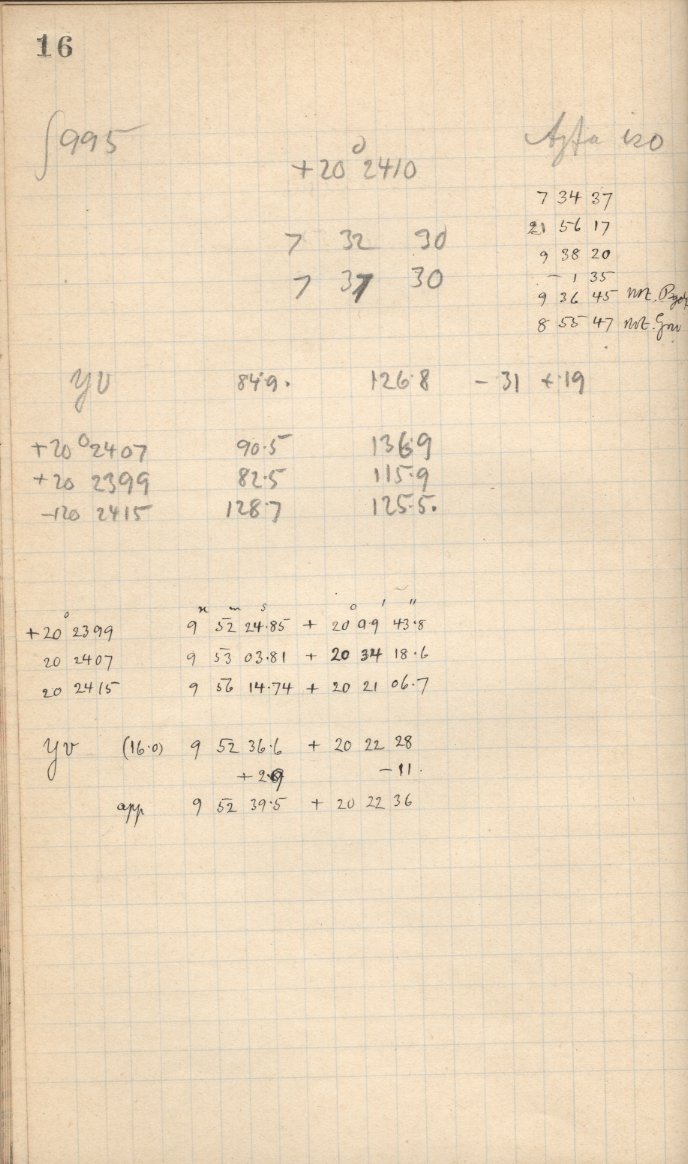 16
∫995
+20° 2410
7 32 30
7 37 30
iso
7 34 37
21 56 17
9 38 20
– 1 35
9 36 45 not.
8 55 47 not.
YV 84.9. 126.8 – 31 +.19
+20° 2407 90.5 136.9
+20 2399 82.5 115.9
+20 2415 128.7 125.5.
h m s ° ' "
+20° 2399 9 52 24.85 + 20 09 43.8
20 2407 9 53 03.81 + 20 34 18.6
20 2415 9 56 14.74 + 20 21 06.7
YV (16.0) 9 52 36.6 + 20 22 28
+2.9 –11.
app 9 52 39.5 + 20 22 36